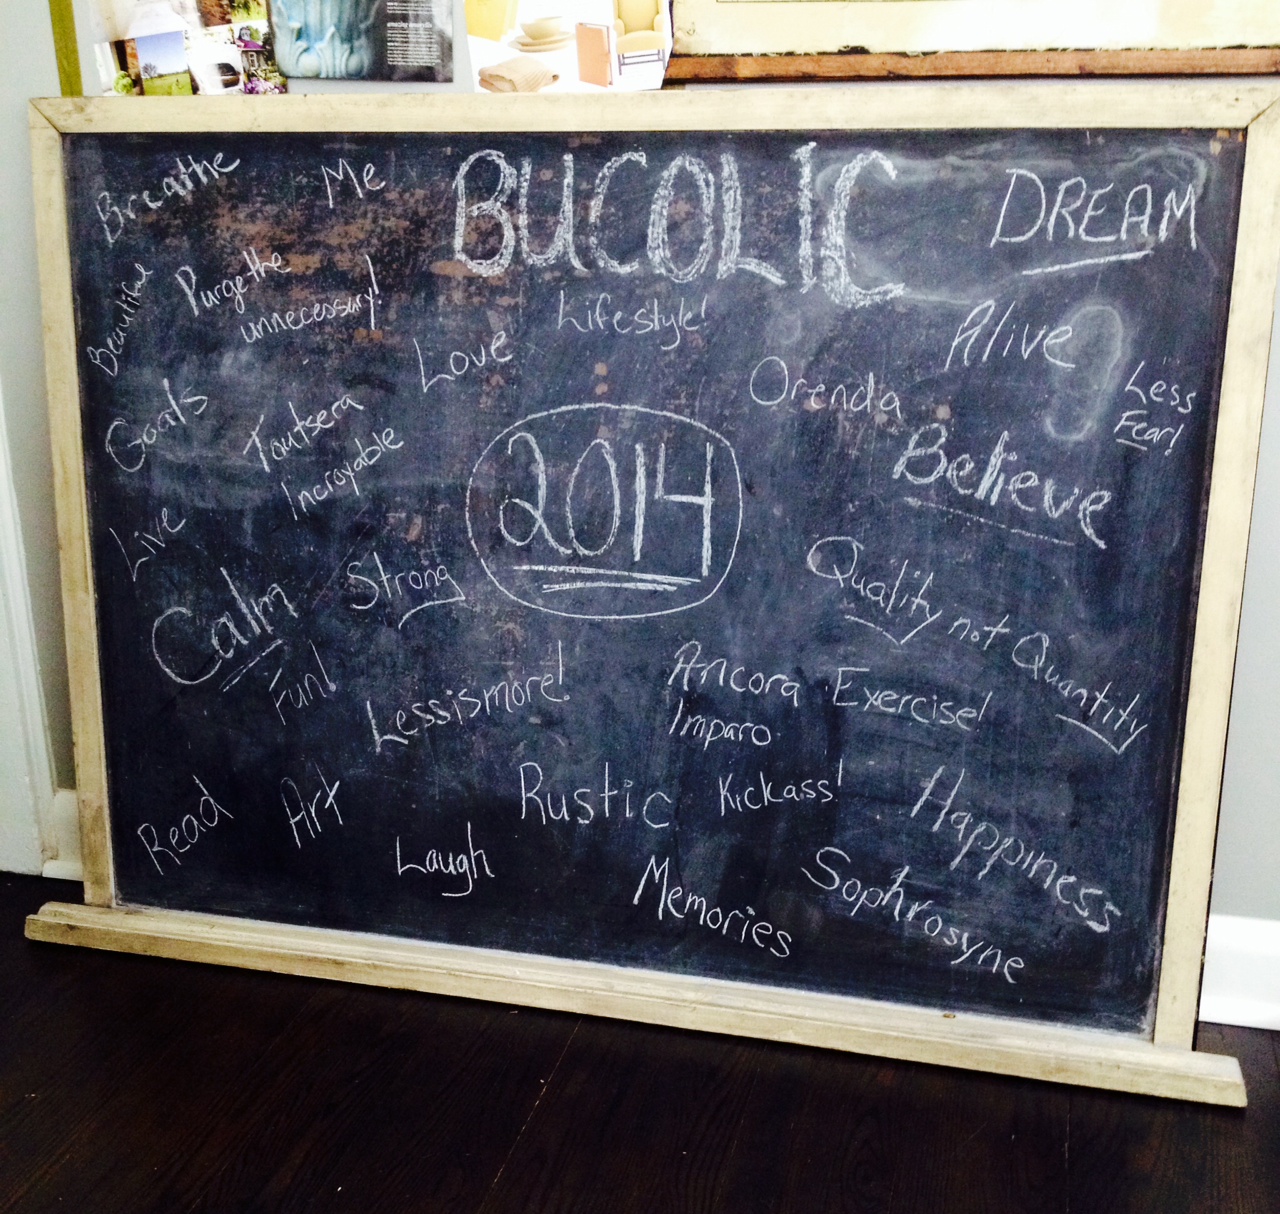 Breathe
Me
BUCOLIC
Lifestyle!
DREAM
Beautiful
Purge the
unnecessary!
Love
Alive
Less
Fear!
Orenda
Goals
Tautsera
Incroyable
2014
Believe
Live
Calm
Strong
Quality not Quantity
Fun!
Lessismore!
Ancora
Imparo
Exercise!
Read
Art
Rustic
Kickass!
Happiness
Laugh
Memories
Sophrosyne